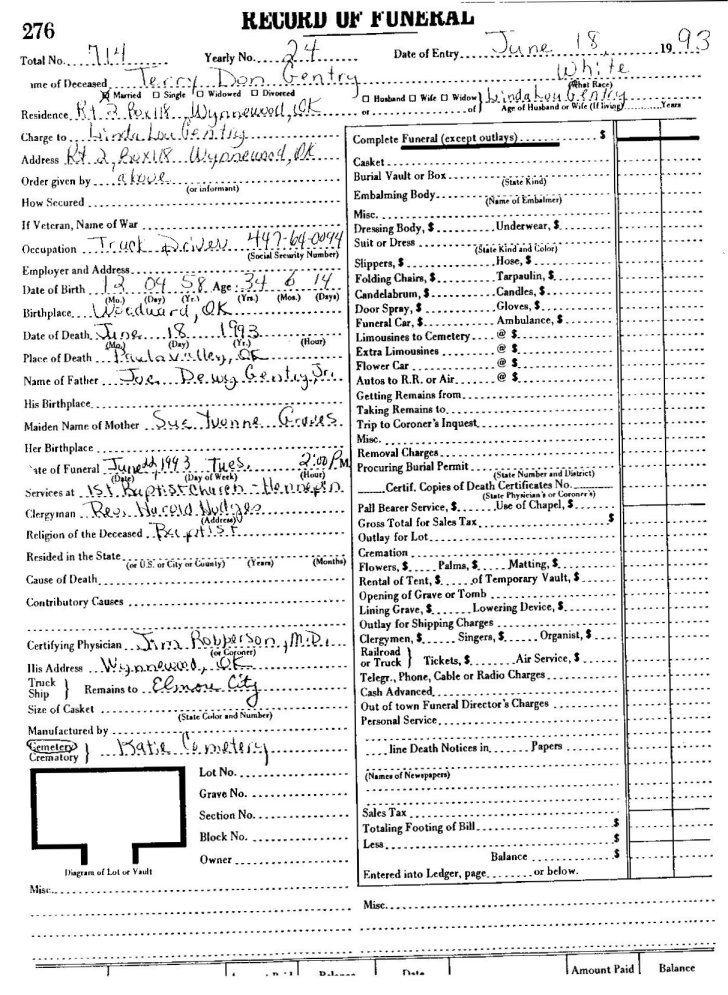 276
RECORD OF FUNERAL
Total No. 714 Yearly No. 24 Date of Entry June 18, 1993
me of Deceased Terry Don Gentry White
(What Race)
☒ Married ☐ Single ☐ Widowed ☐ Divorced ☐ Husband ☐ Wife ☐ Widow} Linda Lou Gentry
Residence Rt 2 Box 118 Wynnewood, OK or of Age of Husband or Wife (If living) Years
Charge to Linda Lou Gentry
Address Rt. 2 Box 118 Wynnewood, OK
Order given by above
(or informant)
How Secured
If Veteran, Name of War
Occupation Truck Driver 447-64-0094
(Social Security Number)
Employer and Address
Date of Birth 12 04 58 Age 34 6 14
(Mo.) (Day) (Yr.) (Yrs.) (Mos.) (Days)
Birthplace Woodward, OK
Date of Death June 18 1993
(Mo.) (Day) (Yr.) (Hour)
Place of Death Pauls Valley, OK
Name of Father Joe Dewy Gentry, Jr.
His Birthplace
Maiden Name of Mother Sue Yvonne Graves
Her Birthplace
ate of Funeral June 22 1993 Tues. 2:00 P.M
(Date) (Day of Week) (Hour)
Services at 1st. Baptist Church - Hennepin
Clergyman Rev. Harold Hodges
(Address)
Religion of the Deceased Baptist
Resided in the State
(or U.S. or City or County) (Years) (Months)
Cause of Death
Contributory Causes
Certifying Physician Jim Robberson, M.D.
(or Coroner)
His Address Wynnewood, OK
Truck
Ship } Remains to Elmore City
Size of Casket
(State Color and Number)
Manufactured by
Cemetery
Crematory } Katie Cemetery
Lot No.
Grave No.
Section No.
Block No.
Owner
Diagram of Lot or Vault
Misc.
Complete Funeral (except outlays) $
Casket
Burial Vault or Box
(State Kind)
Embalming Body
(Name of Embalmer)
Misc.
Dressing Body, $ Underwear, $
Suit or Dress
(State Kind and Color)
Slippers, $ Hose, $
Folding Chairs, $ Tarpaulin, $
Candelabrum, $ Candles, $
Door Spray, $ Gloves, $
Funeral Car, $ Ambulance, $
Limousines to Cemetery @ $
Extra Limousines @ $
Flower Car @ $
Autos to R.R. or Air @ $
Getting Remains from
Taking Remains to
Trip to Coroner's Inquest
Misc.
Removal Charges
Procuring Burial Permit
(State Number and District)
Certif. Copies of Death Certificates No.
(State Physician's or Coroner's)
Pall Bearer Service, $ Use of Chapel, $
Gross Total for Sales Tax $
Outlay for Lot
Cremation
Flowers, $ Palms, $ Matting, $
Rental of Tent, $ of Temporary Vault, $
Opening of Grave or Tomb
Lining Grave, $ Lowering Device, $
Outlay for Shipping Charges
Clergymen, $ Singers, $ Organist, $
Railroad
or Truck } Tickets, $ Air Service, $
Telegr., Phone, Cable or Radio Charges
Cash Advanced
Out of town Funeral Director's Charges
Personal Service
line Death Notices in Papers
(Names of Newspapers)
Sales Tax
Totaling Footing of Bill $
Less $
Balance $
Entered into Ledger, page or below.
Misc.
Balance Date Amount Paid Balance